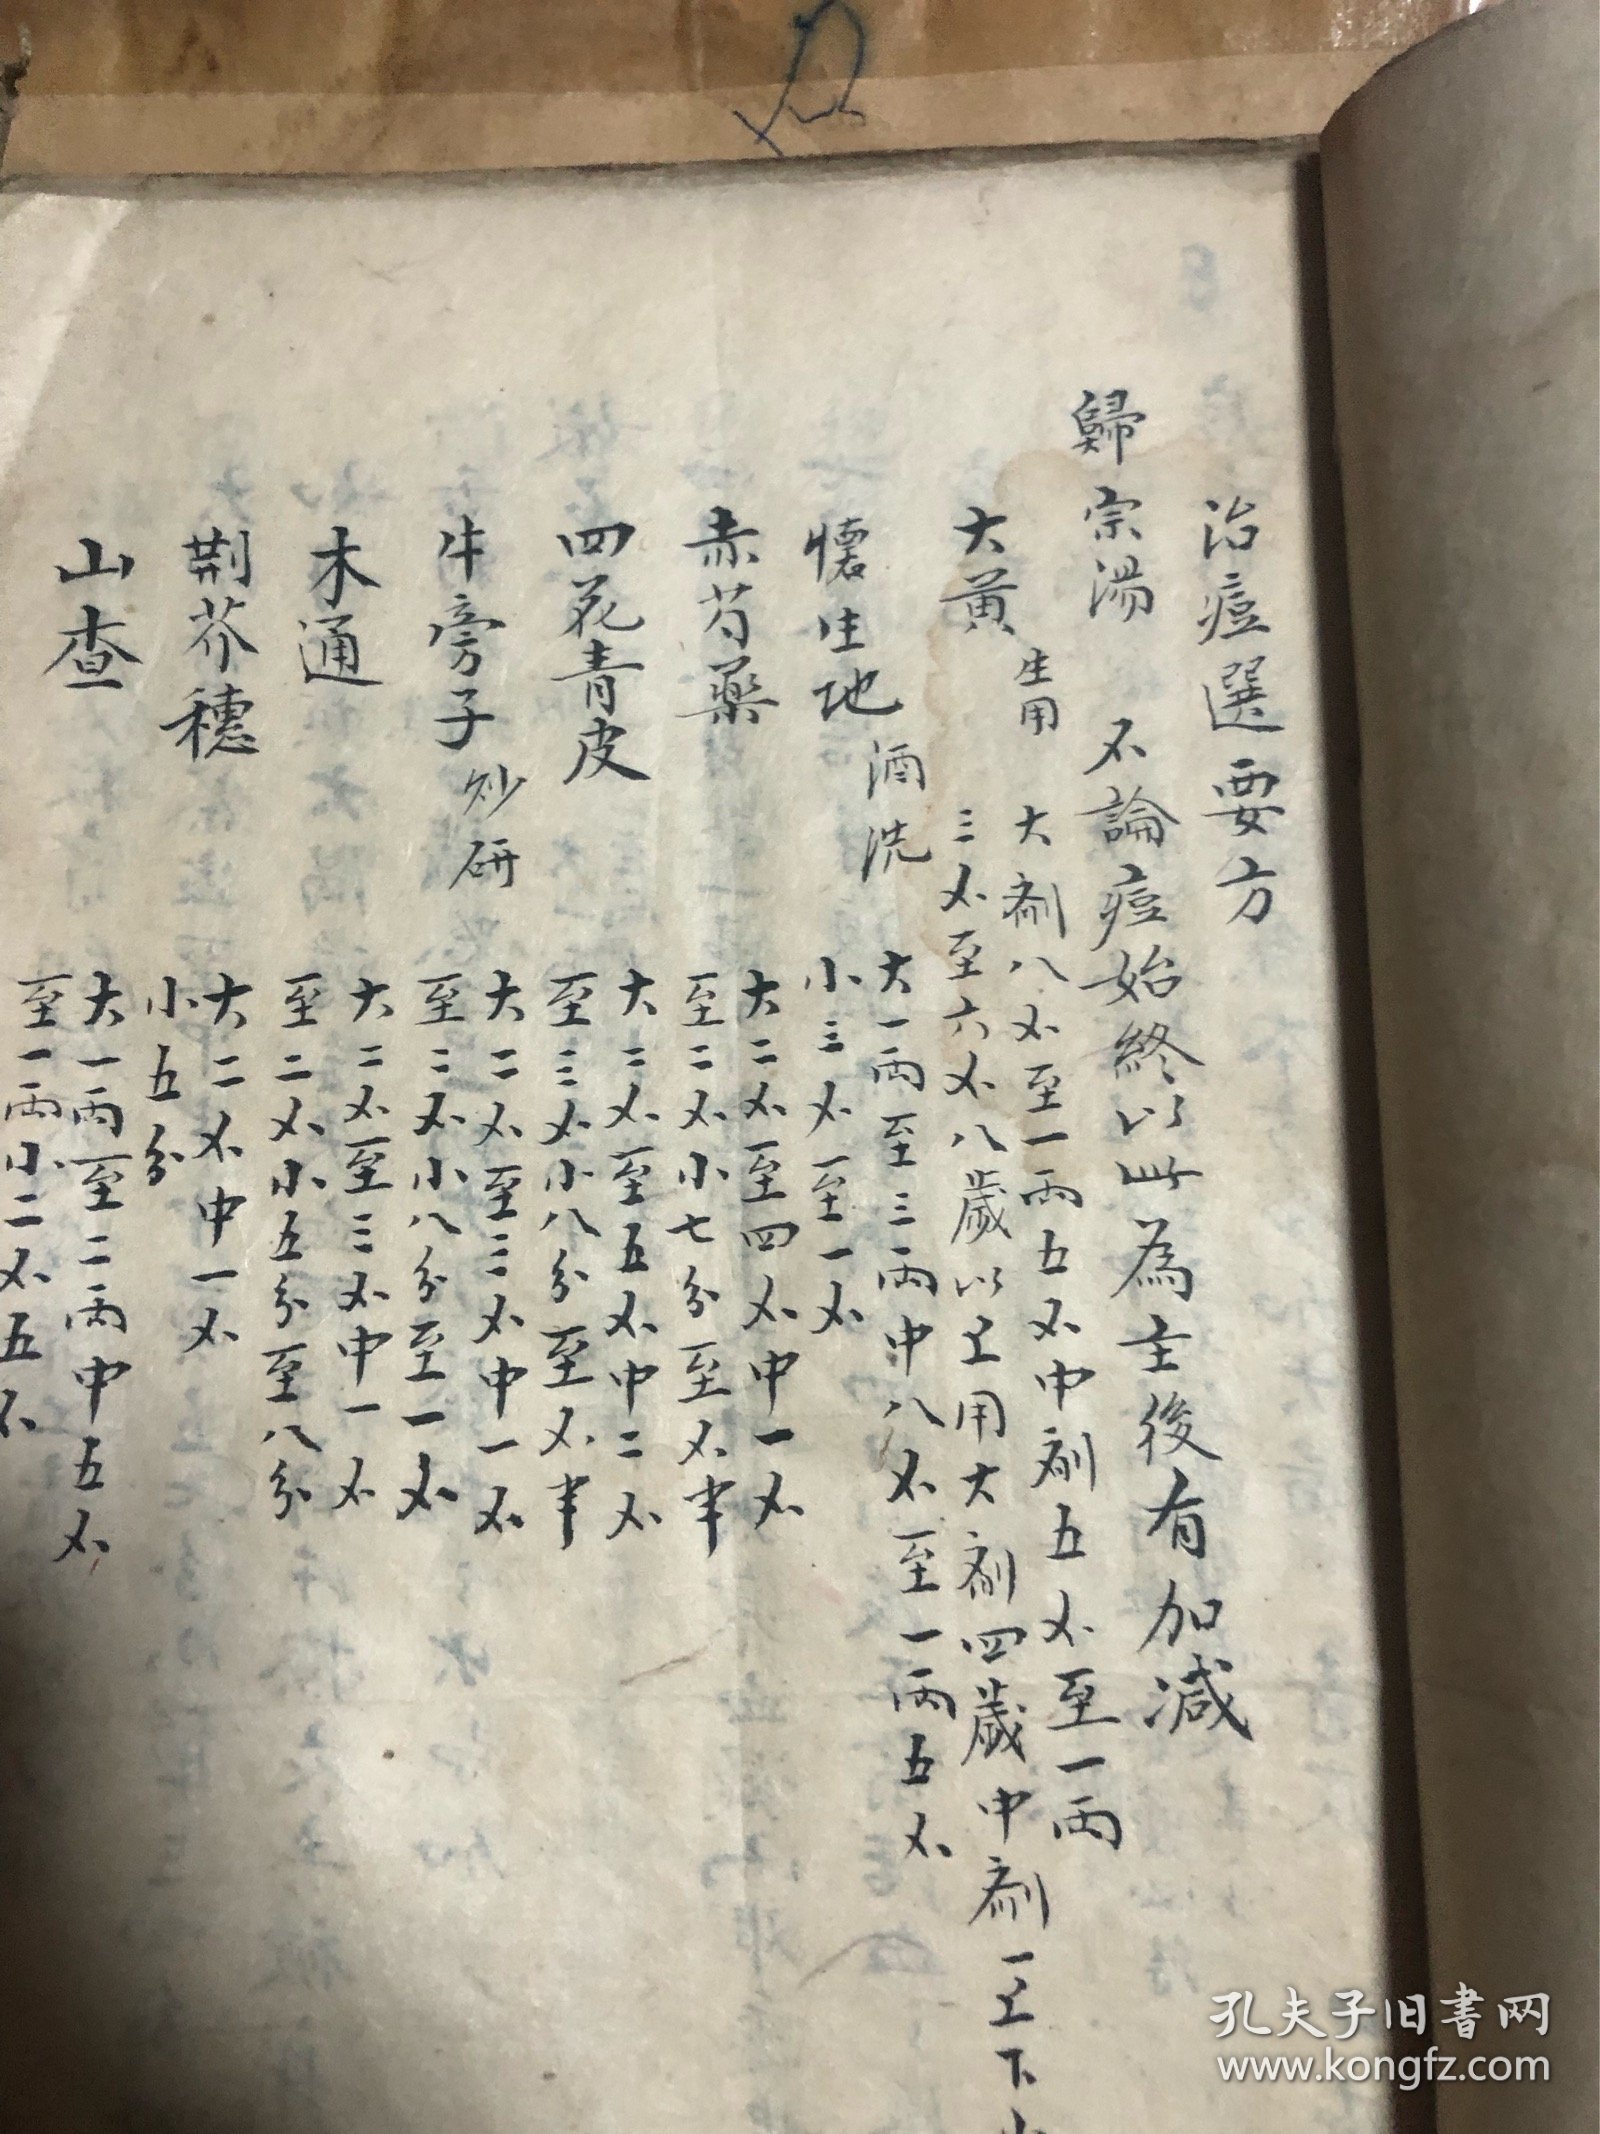 治痘選要方
歸宗湯　不論痘始終以此為主後有加減
大黃　生用　大劑八不至一兩五不中劑五不至一兩
三不至六不八歲以上用大劑四歲中劑一上下小
懷生地　酒洗　大一兩至三兩中八不至一兩五不
小三不至一不
赤芍藥　大二不至四不中一不
至二不小七分至不半
四花青皮　大二不至五不中二不
至三不小八分至不半
牛旁子　炒研　大二不至三不中一不
至二不小八分至一不
木通　大二不至三不中一不
至二不小五分至八分
荆芥穗　大二不中一不
小五分
山查　大一兩至二兩中五不
至一兩小二不五不
孔夫子旧書网
www.kongfz.com